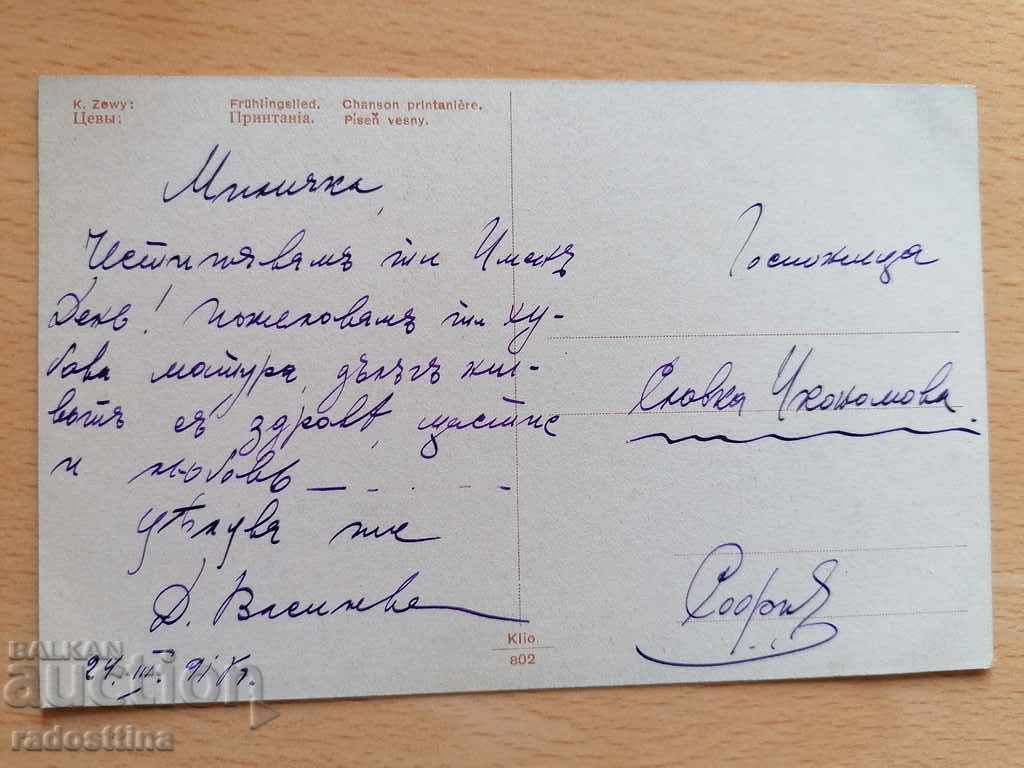 K. Zewy: Frühlingslied. Chanson printanière.
Цевы: Принтанiя. Piseň vesny.
Миличка,
Честитявамъ ти Именъ
День! Пожелавамъ ти ху-
бова матура, дълъгъ жи-
вотъ съ здраве, щастие
и любовь
Цѣлува те
Д. Василева
24. III.
Госпожица
Славка Икономова
София
Klio.
802
BALKAN
auction
radosttina